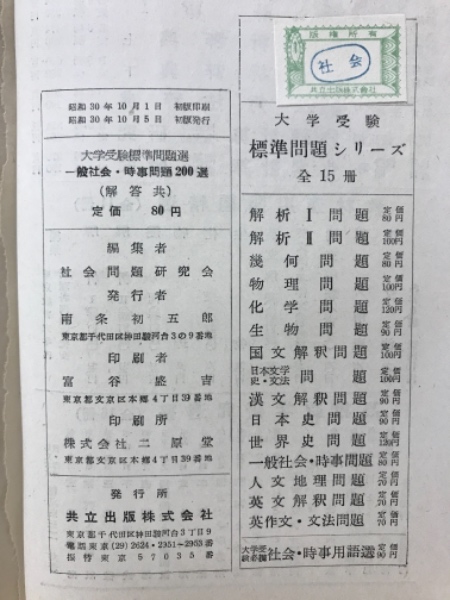 昭和30年10月1日 初版印刷
昭和30年10月5日 初版発行
大学受験標準問題選
一般社会・時事問題200選
(解答共)
定価 80円
編集者
社会問題研究会
発行者
南条初五郎
東京都千代田区神田駿河台3の9番地
印刷者
富谷盛吉
東京都文京区本郷4丁目39番地
印刷所
株式会社二原堂
東京都文京区本郷4丁目39番地
発行所
共立出版株式会社
東京都千代田区神田駿河台3丁目9
電話東京(29)2624・2351~2903番
振替東京57035番
版権所有
社会
共立出版株式会社
大学受験
標準問題シリーズ
全15冊
解析Ⅰ問題 定価80円
解析Ⅱ問題 定価100円
幾何問題 定価80円
物理問題 定価100円
化学問題 定価120円
生物問題 定価90円
国文解釈問題 定価100円
日本文学史・文法問題 定価100円
漢文解釈問題 定価90円
日本史問題 定価90円
世界史問題 定価120円
一般社会・時事問題 定価80円
人文地理問題 定価70円
英文解釈問題 定価90円
英作文・文法問題 定価70円
大学受験必携 社会・時事用語選 定価90円